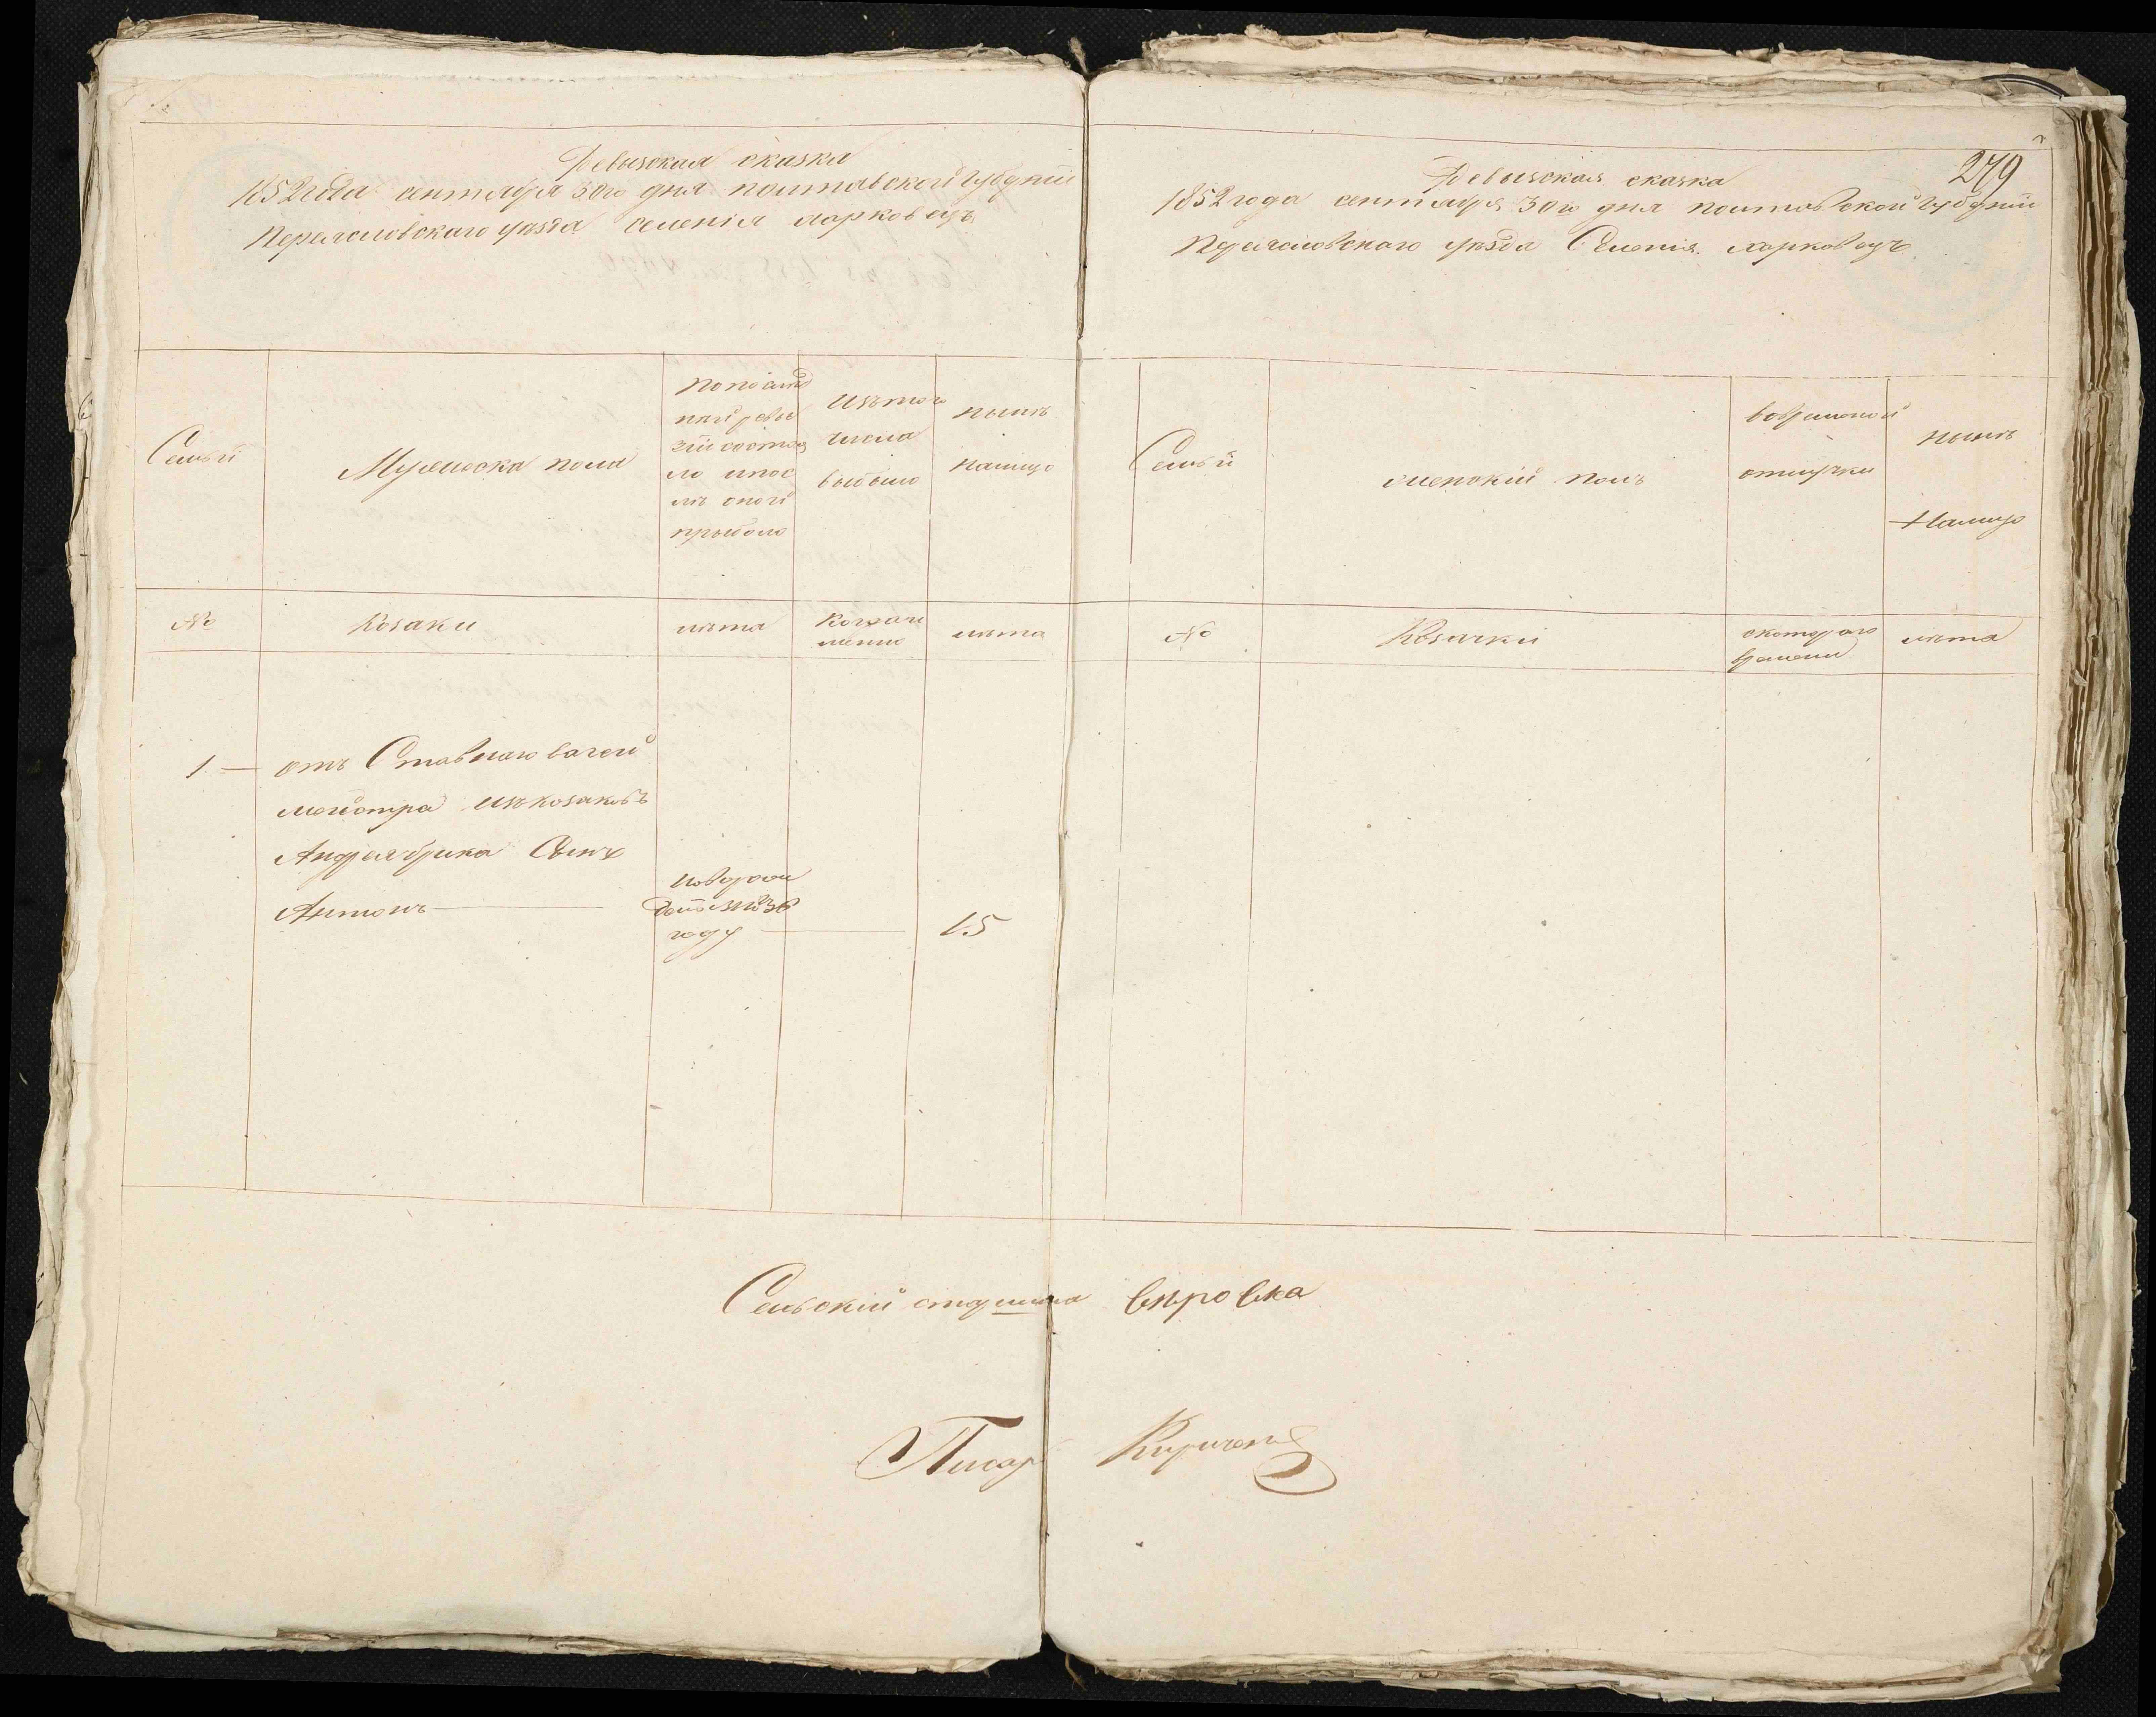 Ревизская сказка
1852 года сентября 30го дня полтавской Губернии
Переясловского уезда Селения Харковецъ
Семьи
Мужеска пола
По последней ревизіи состояло и после оной прыбыло
Изътого числа выбыло
ныне налицо
№
Козаки
лета
Когда именно
лета
1 —
отъ Ставнаго
мейстра изъ козаковъ
Андрея Сынъ
Антонъ
году
15
279
Ревизская сказка
1852 года сентября 30го дня полтавской Губерніи
Переяславского уезда Селенія Харковецъ
Семьи
женскій полъ
вовременой отлучки
ныне Налицо
№
Козачки
скотораго времени
лета
Сельскій старшина Веровка
Писар Кириченко